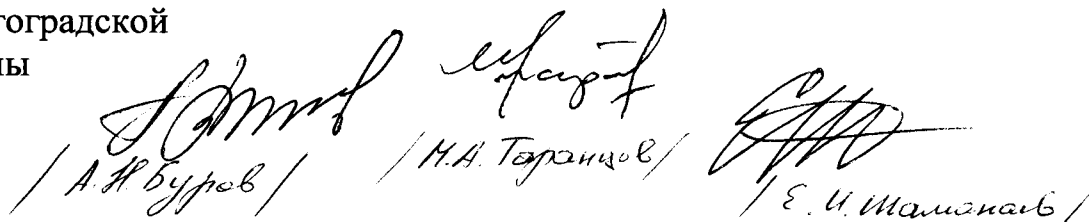 тоградской
ны
/ А.Н. Буров /
/ М.А. Таранцов /
/ Е.И. Шаманаев /